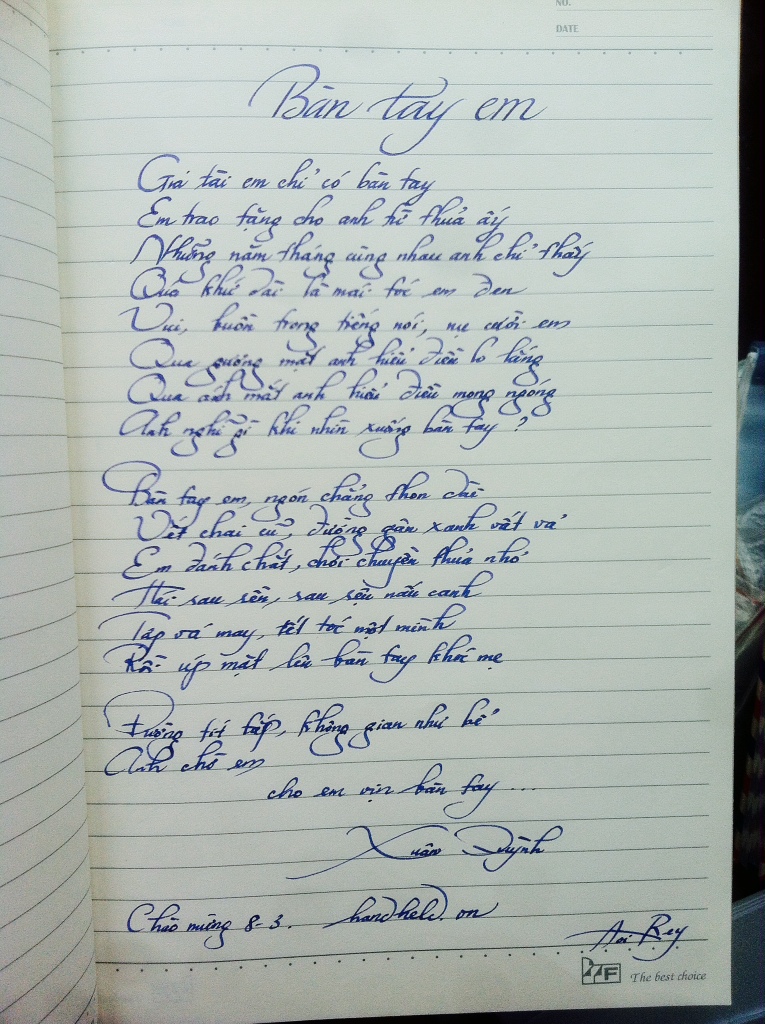 NO.
DATE
Bàn tay em
Gia tài em chỉ có bàn tay
Em trao tặng cho anh từ thuở ấy
Những năm tháng cùng nhau anh chỉ thấy
Quá khứ dài là mái tóc em đen
Vui, buồn trong tiếng nói, nụ cười em
Qua gương mặt anh hiểu điều lo lắng
Qua ánh mắt anh hiểu điều mong ngóng
Anh nghĩ gì khi nhìn xuống bàn tay ?
Bàn tay em, ngón chẳng thon dài
Vết chai cũ, đường gân xanh vất vả
Em đánh chắt, chơi chuyền thuở nhỏ
Hái rau sên, rau sệu nấu canh
Tập vá may, tết tóc một mình
Rồi úp mặt lên bàn tay khóc mẹ
Đường tít tắp, không gian như bể
Anh chờ em
cho em vịn bàn tay ...
Xuân Quỳnh
Chào mừng 8-3. handheld. on
Rey
F
The best choice